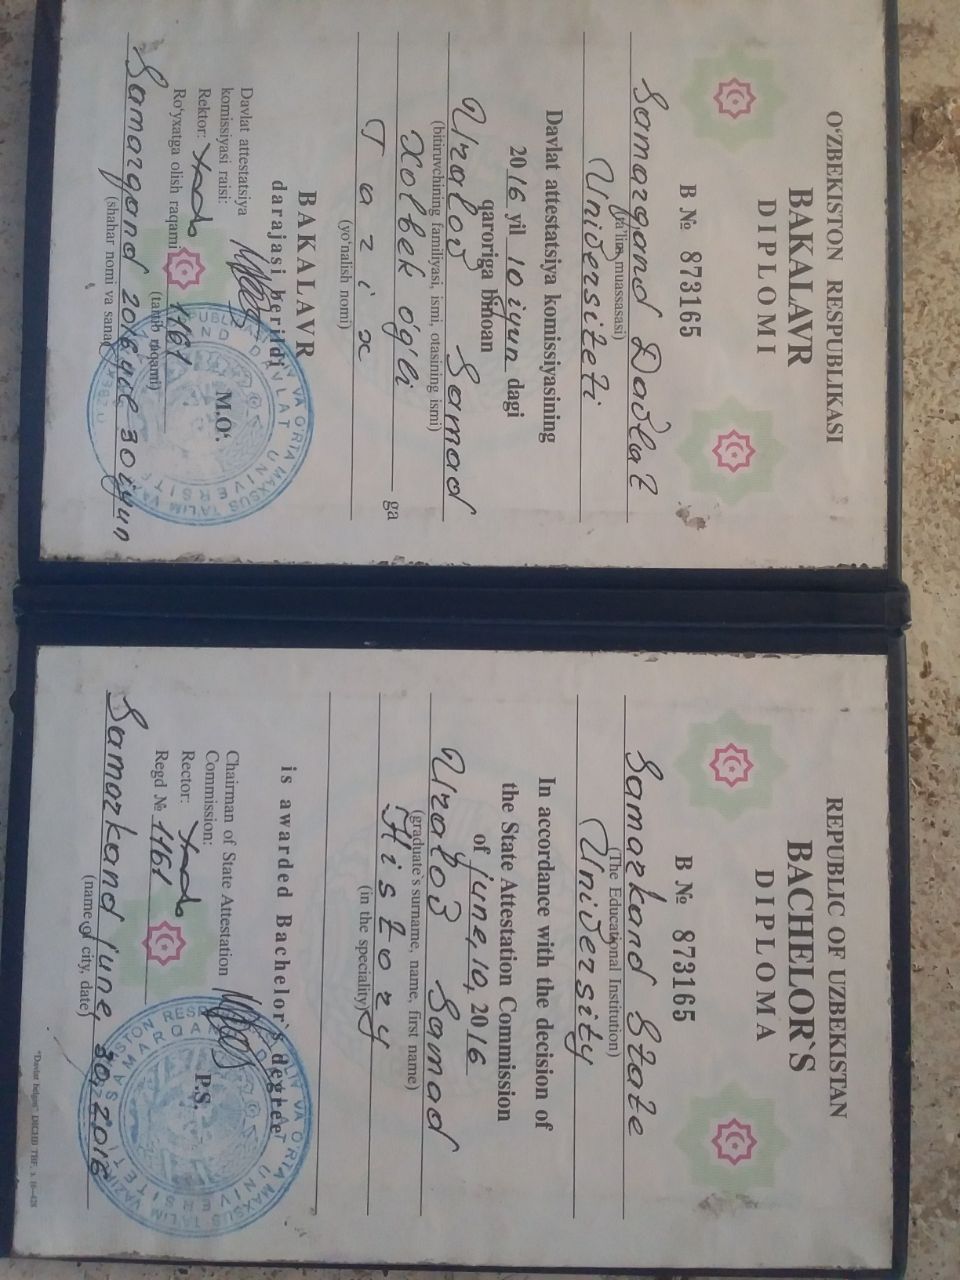 O'ZBEKISTON RESPUBLIKASI
BAKALAVR
DIPLOMI
B № 873165
Samarqand Davlat
(ta'lim muassasasi)
Universiteti
Davlat attestatsiya komissiyasining
2016 yil 10 iyun dagi
qaroriga binoan
Uralov Samad
(bitiruvchining familiyasi, ismi, otasining ismi)
Xolbek o'g'li ga
Tarix
(yo'nalish nomi)
BAKALAVR
darajasi berildi
Davlat attestatsiya
komissiyasi raisi:
M.O'.
Rektor:
Ro'yxatga olish raqami 1161
(tartib raqami)
Samarqand 2016 yil 30 iyun
(shahar nomi va sana)
REPUBLIC OF UZBEKISTAN
BACHELOR`S
DIPLOMA
B № 873165
Samarkand State
(The Educational Institution)
University
In accordance with the decision of
the State Attestation Commission
of june, 10, 2016
Uralov Samad
(graduate's surname, name, first name)
History
(in the speciality)
is awarded Bachelor`s degree
Chairman of State Attestation
Commission:
P.S.
Rector:
Regd № 1161
Samarkand june, 30, 2016
(name of city, date)